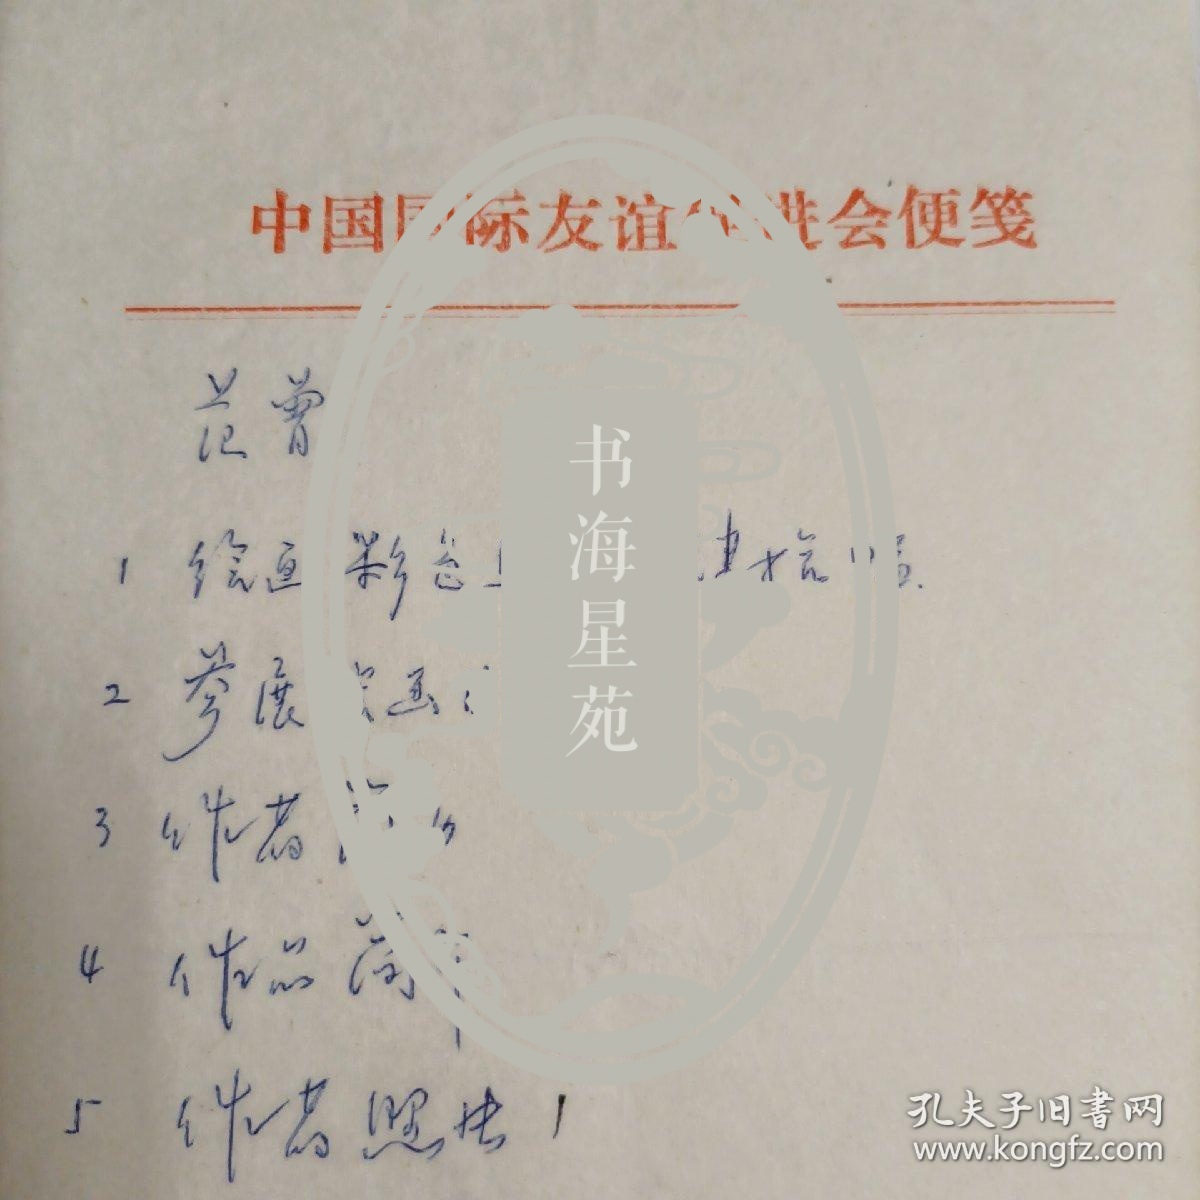 中国国际友谊促进会便笺
范曾
1 绘画彩色
2 参展绘画
3 作者简介
4 作品简介
5 作者照片 1
书海星苑
孔夫子旧书网
www.kongfz.com